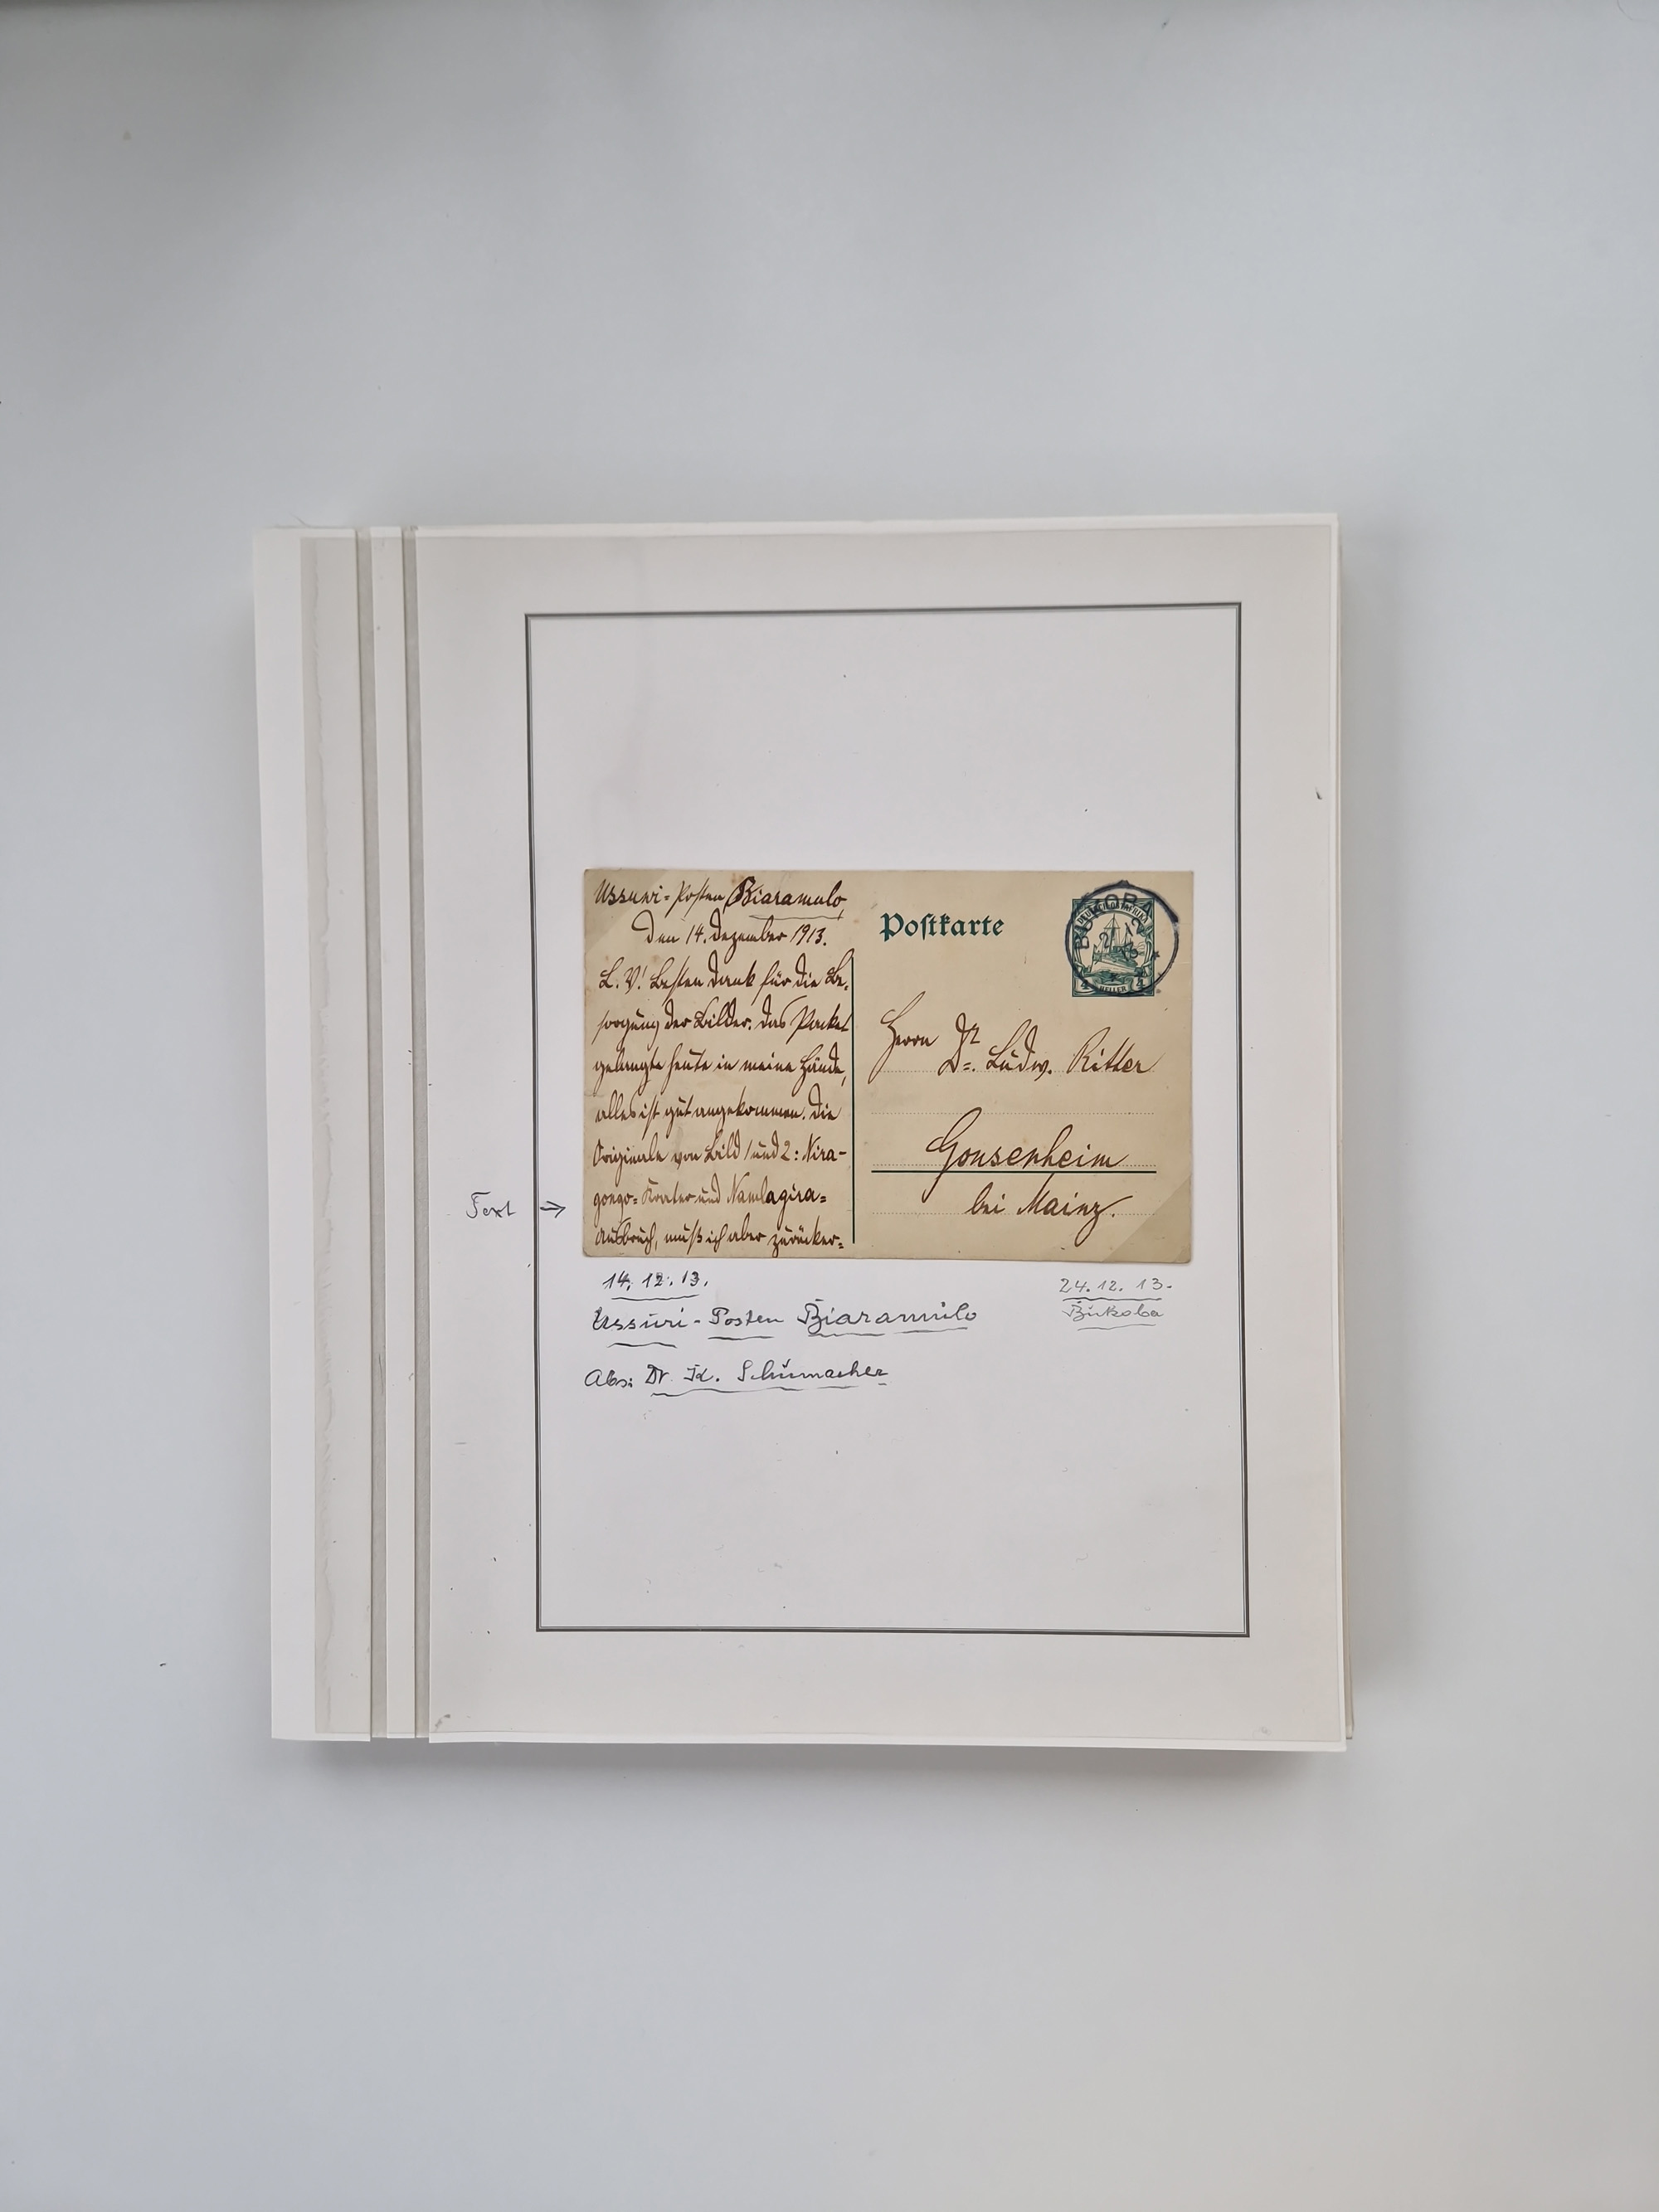 Ussuwi-Posten Biaramulo,
den 14. Dezember 1913.
L. V! Besten Dank für die Be-
sorgung der Bilder. Das Packet
gelangte heute in meine Hände,
alles ist gut angekommen. Die
Originale von Bild 1 und 2: Nira-
gongo-Krater und Namlagira-
Ausbruch, muß ich aber zurücker-
Postkarte
BUKOBA
DEUTSCH-OSTAFRIKA
4 HELLER 4
Herrn Dr. Ludw. Ritter
Gonsenheim
bei Mainz.
Text →
14. 12. 13.
Ussuri-Posten Biaramulo
Abs: Dr. K. Schumacher
24. 12. 13.
Bukoba